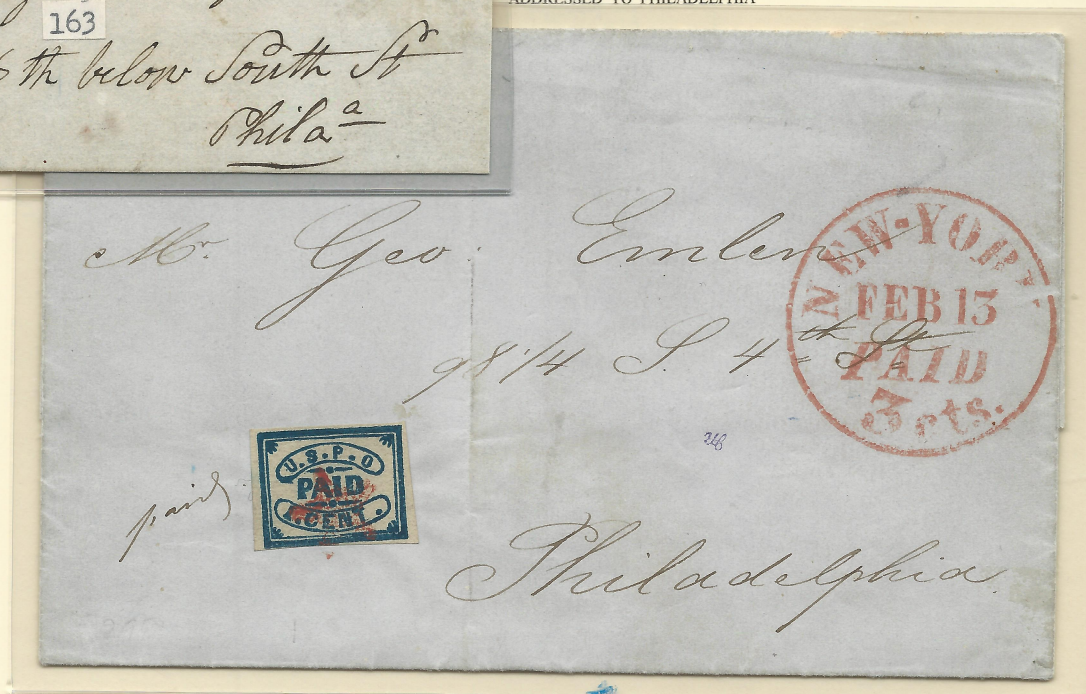 ADDRESSED TO PHILADELPHIA
163
6th below South St
Phila
Mr. Geo. Emlen
98 1/4 S. 4th St
NEW-YORK
FEB 13
PAID
3 cts.
U.S.P.O
PAID
1.CENT.
paid
Philadelphia